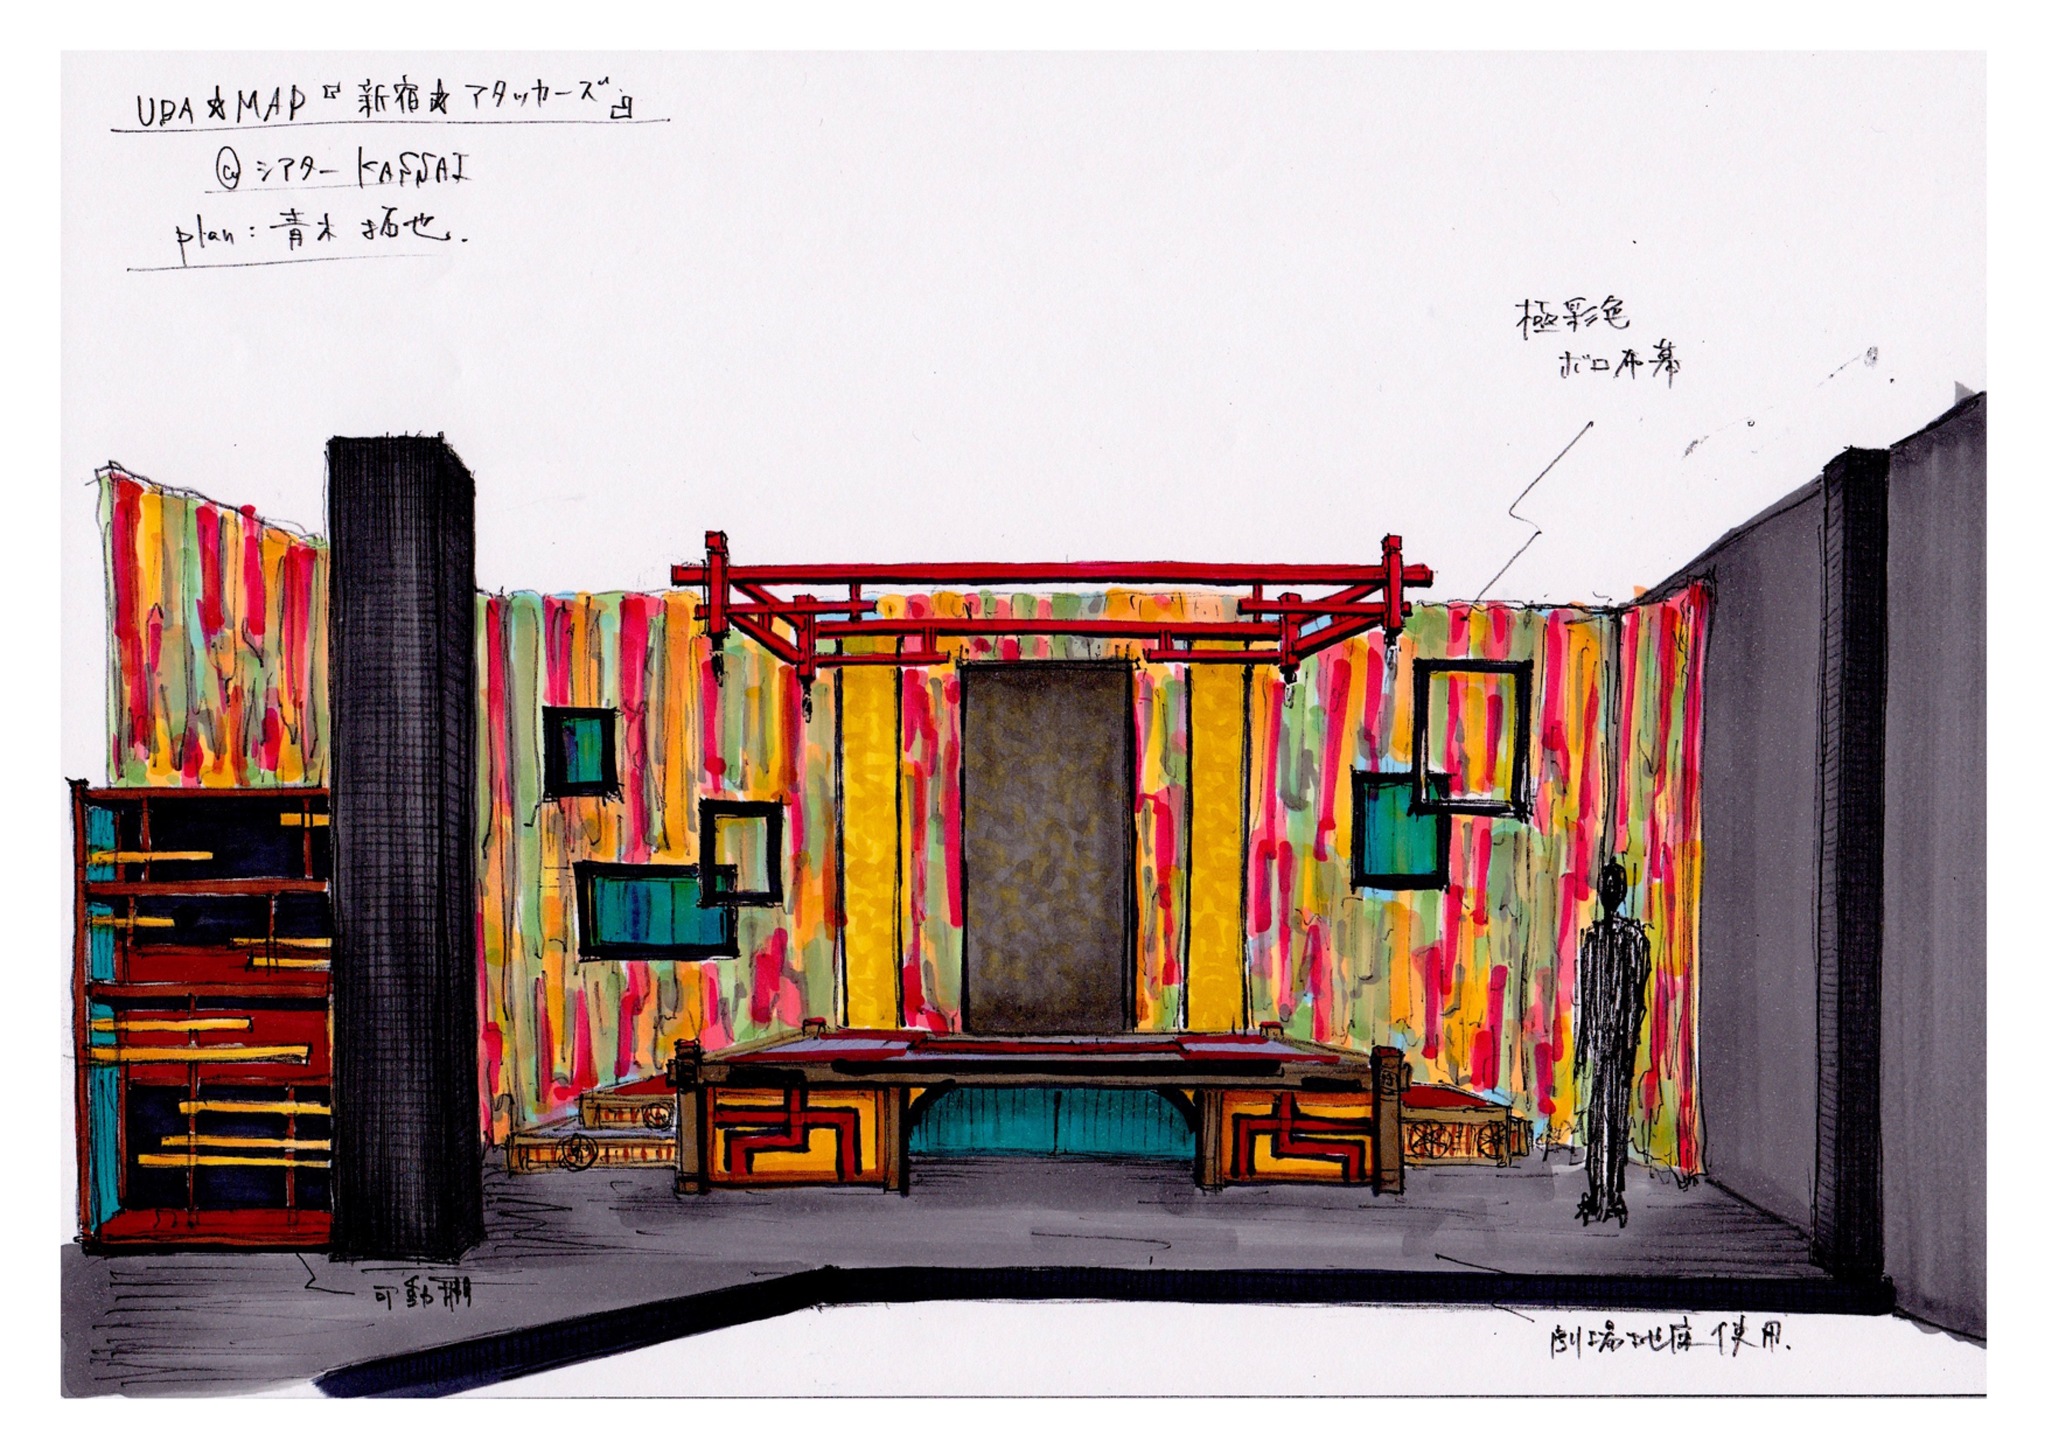 UBA☆MAP『新宿☆アタッカーズ』
@シアターKASSAI
plan:青木 拓也.
極彩色
ボロ布幕
可動棚
劇場地床使用.